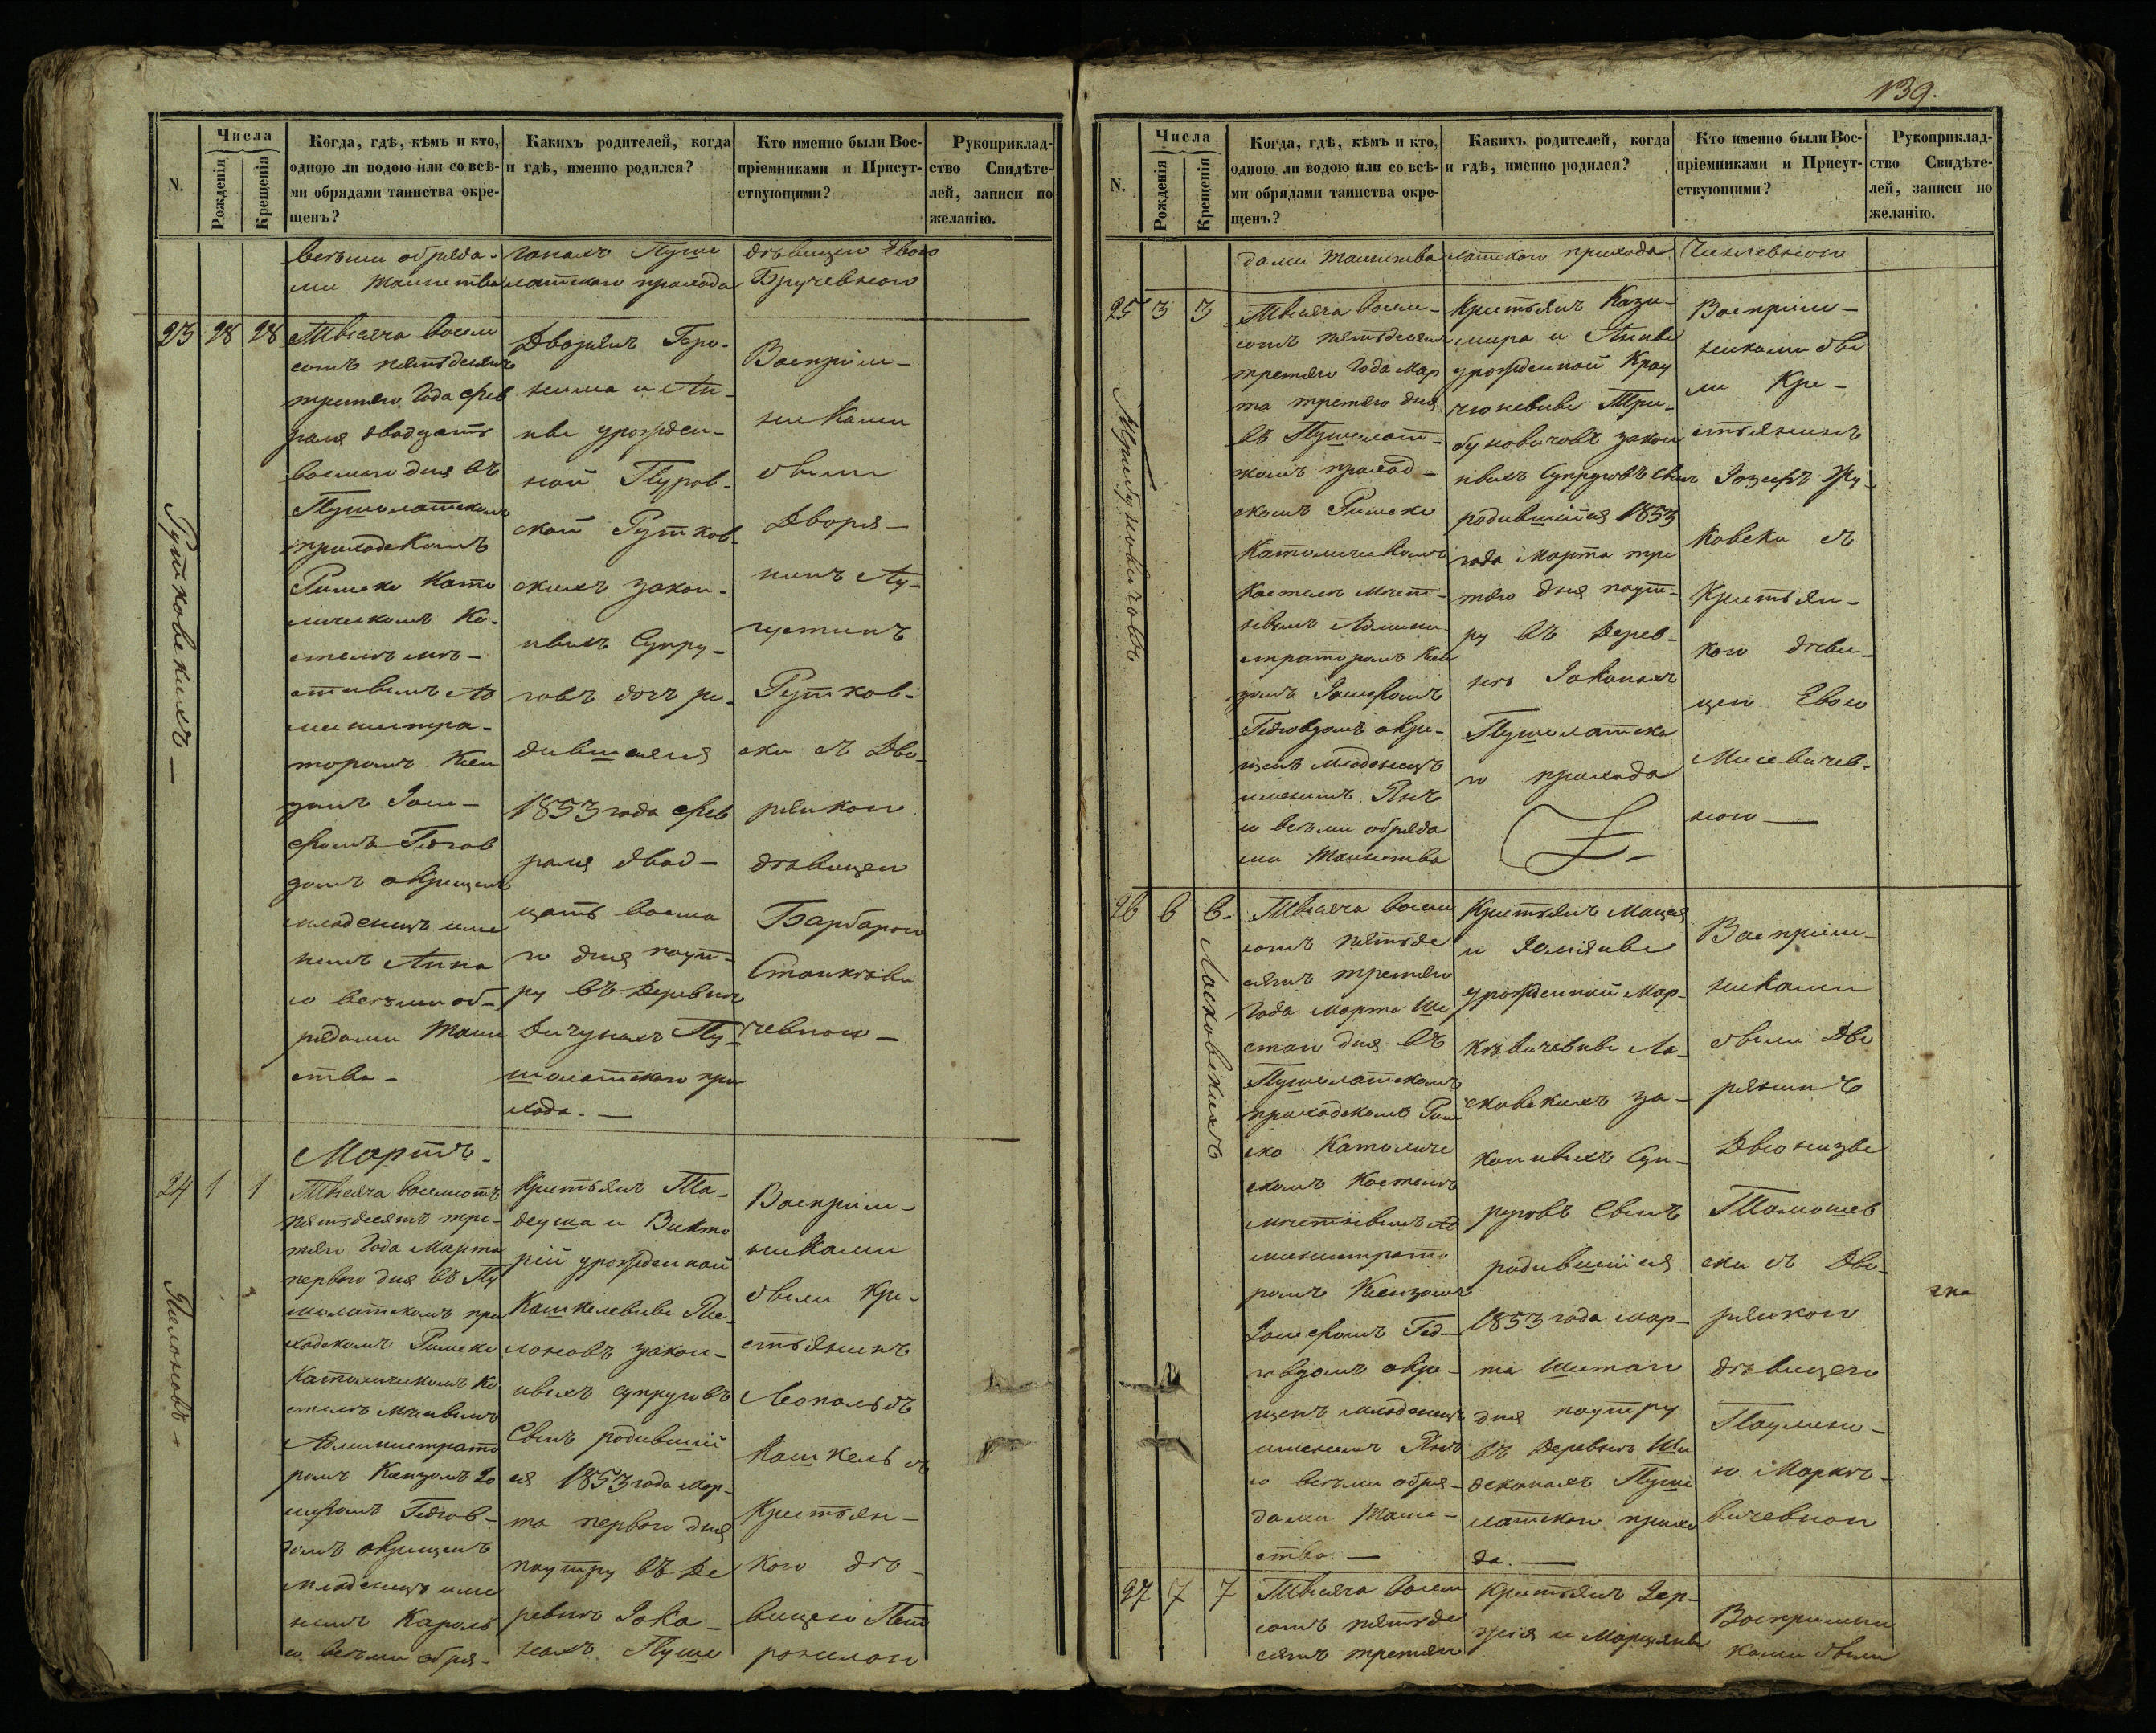 N.
Числа
Рожденія
Крещенія
Когда, гдѣ, кѣмъ и кто,
одною ли водою или со всѣ-
ми обрядами таинства окре-
щенъ?
Какихъ родителей, когда
и гдѣ, именно родился?
Кто именно были Вос-
пріемниками и Присут-
ствующими?
Рукоприклад-
ство Свидѣте-
лей, записи по
желанію.
всѣми обряда-
ми таинства
ганахъ Пуше
латскаго прихода
дѣвицею Евою
23
28
28
Рутковскихъ —
Тысяча восем
сотъ пятьдесятъ
третяго Года Фев
раля двадцать
восмаго дня въ
Пушолатскомъ
приходскомъ
Римско Като
лическомъ Ко-
стелѣ мѣ-
стнымъ Ад
министра-
торомъ Ксен
дзомъ Іоси-
фомъ Гедгов
домъ окрещенъ
младенецъ име
немъ Анна
со всѣми об-
рядами Таин
ства —
Дворянъ Геро-
нима и Ан-
ны урожден-
ной Пуров-
ской Рутков-
скихъ закон-
ныхъ Супру-
говъ дочь ро-
дившаяся
1853 года Фев
раля двад-
цать восма
го дня поут-
ру въ Деревни
Пу-
шолатскаго при
хода. —
Воспріем-
никами
были
Дворя-
нинъ Ав-
густинъ
Рутков-
ски съ Дво-
рянкою
дѣвицею
Барбарою
Станкѣви
чевною —
Мартъ.
24
1
1
Тысяча восемсотъ
пятьдесятъ тре-
тяго Года Марта
перваго дня въ Пу
шолатскомъ при
ходскомъ Римско
Католическомъ Ко
стелѣ мѣстнымъ
Администрато
ромъ Ксендзомъ Іо
сифомъ Гедгов-
домъ окрещенъ
младенецъ име
немъ Кароль
со всѣми обря-
Крестьянъ Та-
деуша и Викто
ріи урожденной
Кашкелевны
закон-
ныхъ супруговъ
Сынъ родившій
ся 1853 года Мар-
та перваго дня
поутру въ Де
ревни Іока-
нахъ Пуше
Воспріем-
никами
были Кре-
стьянинъ
Леопольдъ
Кашкель съ
Крестьян-
кою дѣ-
вицею Пет
ронелою
139.
N.
Числа
Рожденія
Крещенія
Когда, гдѣ, кѣмъ и кто,
одною ли водою или со всѣ-
ми обрядами таинства окре-
щенъ?
Какихъ родителей, когда
и гдѣ, именно родился?
Кто именно были Вос-
пріемниками и Присут-
ствующими?
Рукоприклад-
ство Свидѣте-
лей, записи по
желанію.
дами таинства
латскаго прихода
25
3
3
Трибуновичовъ
Тысяча восем-
сотъ пятьдесятъ
третяго Года Мар
та третяго дня
въ Пушелат-
скомъ приход-
скомъ Римско
Католическомъ
Костелѣ мѣст-
нымъ Админи
страторомъ Ксен
дзомъ Іосифомъ
Гедговдомъ окре-
щенъ младенецъ
именемъ Янъ
со всѣми обряда
ми таинства
Крестьянъ Кази-
мира и Анны
урожденной
Три-
буновичовъ закон
ныхъ Супруговъ Сынъ
родившійся 1853
года Марта тре
тяго дня поут-
ру въ Дерев-
нѣ Іоканахъ
Пушолатска
го прихода
Воспріем-
никами бы
ли Кре-
стьянинъ
Іозефъ
ковски съ
Крестьян-
кою дѣви-
цею Евою
Мисевичев-
ною —
26
6
6.
Ласковскихъ
Тысяча восем
сотъ пятьде
сятъ третяго
Года Марта Ше
стаго дня въ
Пушолатскомъ
приходскомъ Рим
ско Католиче
скомъ Костелѣ
мѣстнымъ Ад
министрато
ромъ Ксендзомъ
Іосифомъ Гед-
говдомъ окре-
щенъ младенецъ
именемъ Янъ
со всѣми обря-
дами Таин-
ства. —
Крестьянъ Мацея
и
урожденной Мар-
кѣвичевны Ла-
сковскихъ за-
конныхъ Суп-
руговъ Сынъ
родившійся
1853 года Мар-
та Шестаго
дня поутру
въ Деревнѣ
Пуше
латскаго прихо
да. —
Воспріем-
никами
были Дво
рянинъ
Томашев
ски съ Дво-
рянкою
дѣвицею
Паулино-
ю Маркѣ-
вичевною
27
7
7
Тысяча восем
сотъ пятьде
сятъ третяго
Воспріемни
ками были